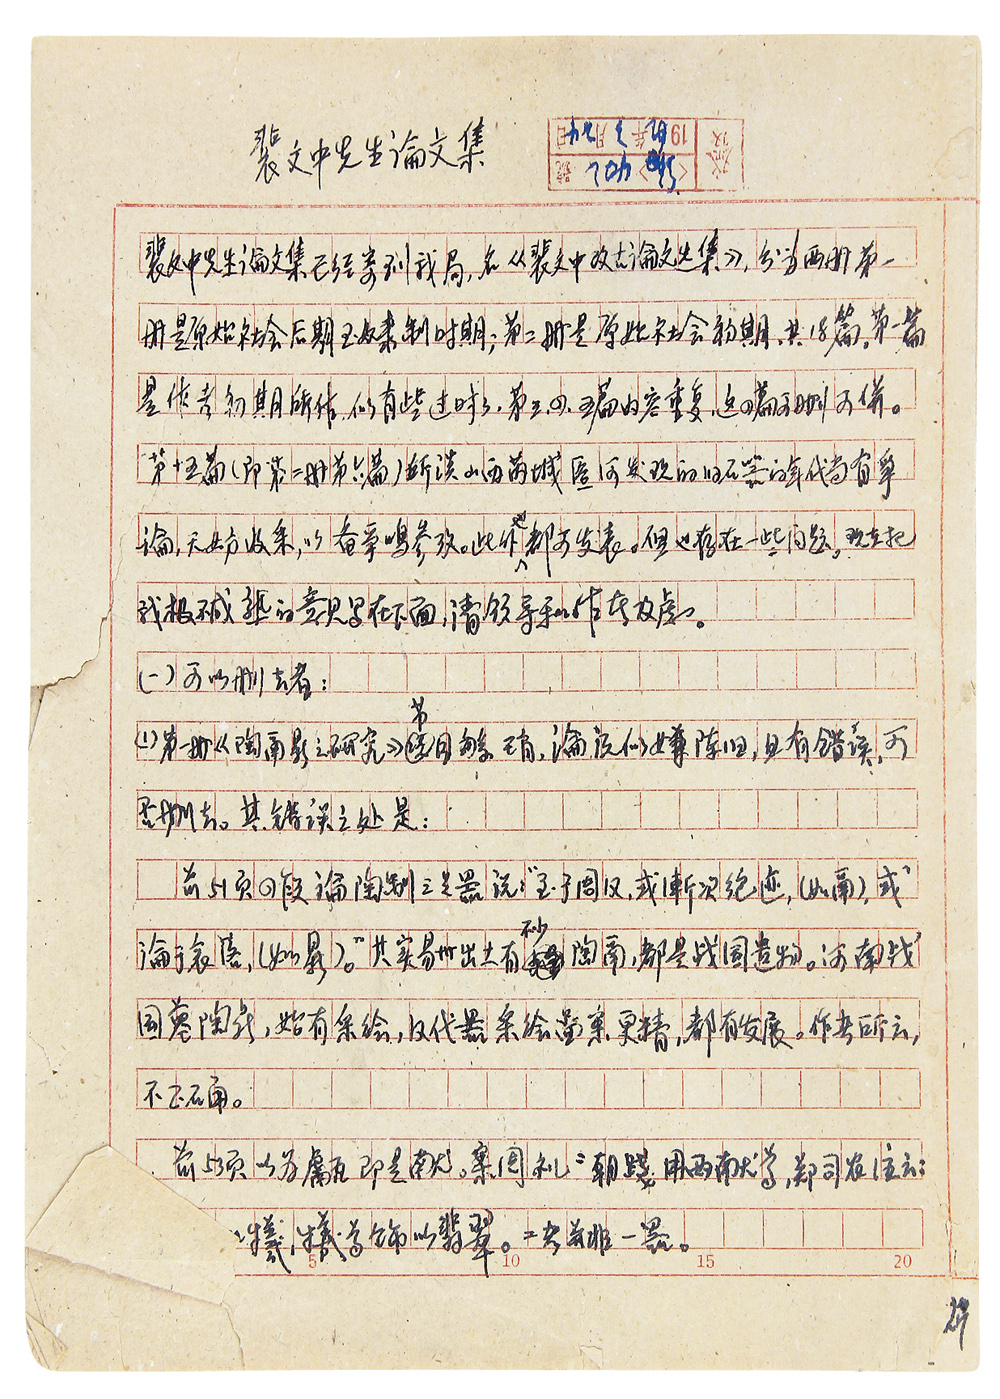 裴文中先生论文集
19 年 月 日
號
裴文中先生论文集已经寄到我局,名《裴文中考古论文选集》,分为两册第一
册是原始社会后期至奴隶制时期;第二册是原始社会初期、共18篇。第一篇
是作者初期所作,似有些过时、第三、四、五篇内容重复,这四篇可删可併。
第十五篇(即第二册第六篇)所谈山西芮城匼河发现的旧石器的年代尚有争
论,无妨收系,以备争鸣参考。此外都可发表。但也存在一些问题。现在把
我极不成熟的意见写在下面,请领导和作者考虑。
(一)可以删去者:
(1)第一册《陶鬲鼎之研究》节目繁琐,论证似嫌陈旧,且有错误,可
否删去。其错误之处是:
前51页四段论陶制三足器说:“至于周汉,或渐次绝迹,(如鬲),或
论于衰落,(如鼎)。”其实易州出土有砂陶鬲,都是战国遗物。河南战
国墓陶鼎,始有彩绘,汉代器彩绘图案更精,都有发展。作者所云,
不正确。
前53页以为甗即是献。案周礼:朝践用两献尊,郑司农注云:
牺,牺尊饰以翡翠。二者并非一器。
5 10 15 20